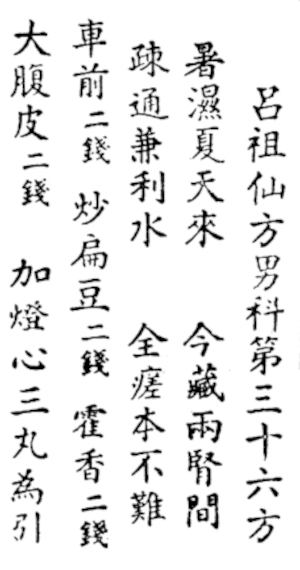 呂祖仙方男科第三十六方
暑濕夏天來 今藏兩腎間
疎通兼利水 全瘥本不難
車前二錢 炒扁豆二錢 霍香二錢
大腹皮二錢 加燈心三丸為引